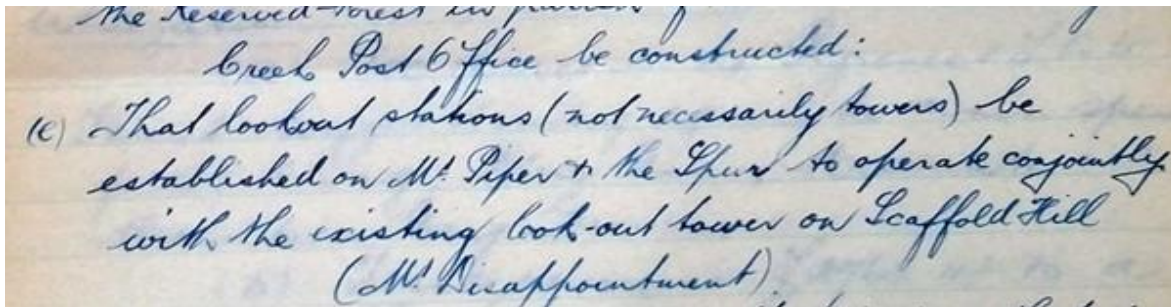 the Reserved Forest in
Creek Post Office be constructed:
(c) That lookout stations (not necessarily towers) be
established on Mt. Piper & the Spur to operate conjointly
with the existing look-out tower on Scaffold Hill
(Mt Disappointment)